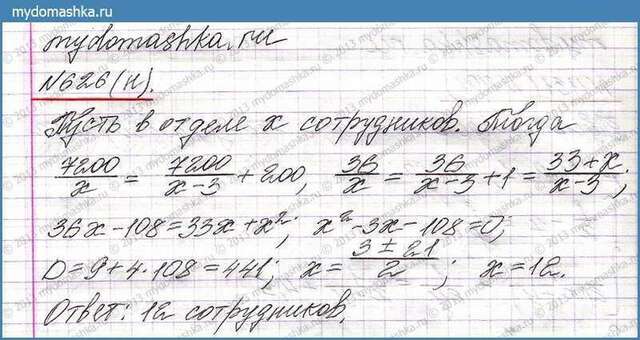 mydomashka.ru
mydomashka.ru
№626(н).
Пусть в отделе x сотрудников. Тогда
7200/x = 7200/(x-3) + 200, 36/x = 36/(x-3) + 1 = (33+x)/(x-3);
36x-108=33x+x²; x²-3x-108=0;
D=9+4·108=441; x=(3±21)/2; x=12.
Ответ: 12 сотрудников.